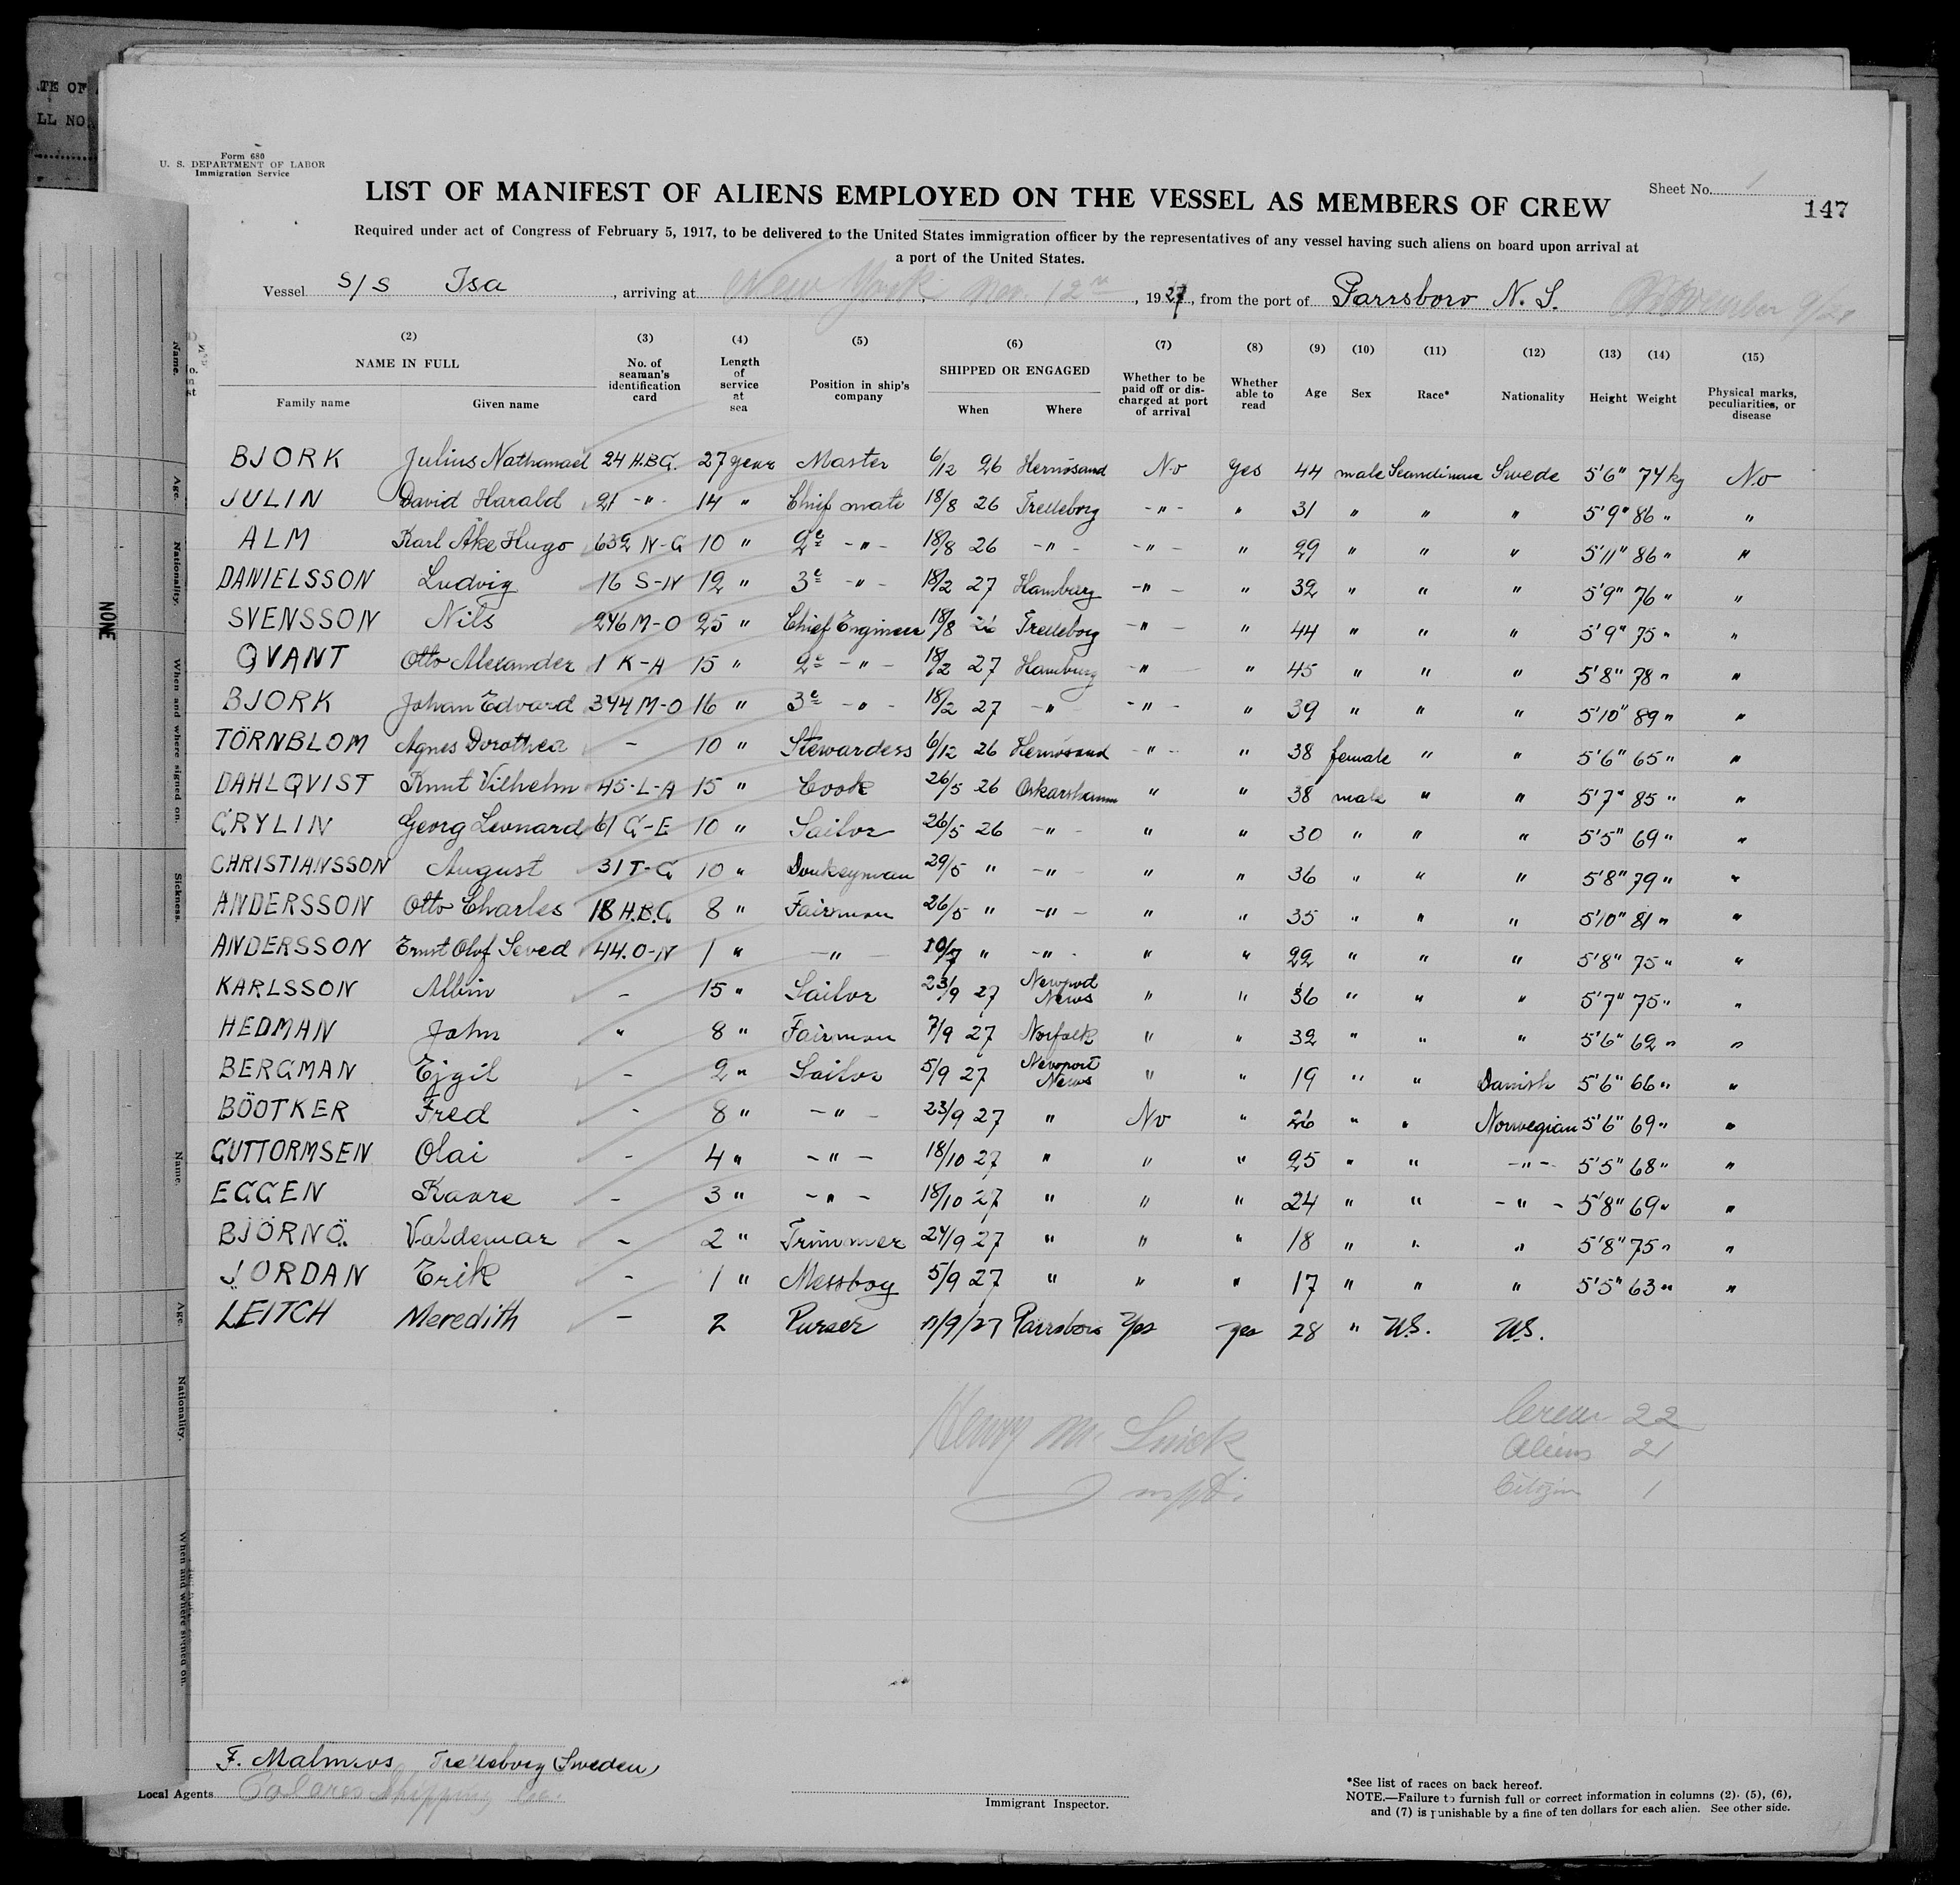 TE OF
LL NO.
Form 680
U. S. DEPARTMENT OF LABOR
Immigration Service
Sheet No. 1
147
LIST OF MANIFEST OF ALIENS EMPLOYED ON THE VESSEL AS MEMBERS OF CREW
Required under act of Congress of February 5, 1917, to be delivered to the United States immigration officer by the representatives of any vessel having such aliens on board upon arrival at
a port of the United States.
Vessel S/S Isa, arriving at New York, Nov. 12th, 1927, from the port of Parrsboro N. S. November 9/27
(2) (3) (4) (5) (6) (7) (8) (9) (10) (11) (12) (13) (14) (15)
NAME IN FULL No. of seaman's identification card Length of service at sea Position in ship's company SHIPPED OR ENGAGED Whether to be paid off or discharged at port of arrival Whether able to read Age Sex Race* Nationality Height Weight Physical marks, peculiarities, or disease
Family name Given name When Where
BJORK Julius Nathanael 24 H.B.G. 27 year Master 6/12 26 Hernösand No yes 44 male Scandinave Swede 5'6" 74 kg No
JULIN David Harald 21 -"- 14 " Chief mate 18/8 26 Trelleborg -"- " 31 " " " 5'9" 86 " "
ALM Karl Åke Hugo 632 N-G 10 " 2e -"- 18/8 26 -"- -"- " 29 " " " 5'11" 86 " "
DANIELSSON Ludvig 16 S-N 12 " 3e -"- 18/2 27 Hamburg -"- " 32 " " " 5'9" 76 " "
SVENSSON Nils 246 M-O 25 " Chief Engineer 18/8 26 Trelleborg -"- " 44 " " " 5'9" 75 " "
QVANT Otto Alexander 1 K-A 15 " 2e -"- 18/2 27 Hamburg -"- " 45 " " " 5'8" 78 " "
BJORK Johan Edvard 344 M-O 16 " 3e -"- 18/2 27 -"- -"- " 39 " " " 5'10" 89 " "
TÖRNBLOM Agnes Dorothea - 10 " Stewardess 6/12 26 Hernösand -"- " 38 female " " 5'6" 65 " "
DAHLQVIST Knut Vilhelm 45-L-A 15 " Cook 26/5 26 Oskarshamn " " 38 male " " 5'7" 85 " "
GRYLIN Georg Leonard 61 G-E 10 " Sailor 26/5 26 -"- " " 30 " " " 5'5" 69 " "
CHRISTIANSSON August 31 T-G 10 " Donkeyman 29/5 " -"- " " 36 " " " 5'8" 79 " "
ANDERSSON Otto Charles 18 H.B.G. 8 " Fairman 26/5 " -"- " " 35 " " " 5'10" 81 " "
ANDERSSON Ernst Olof Seved 44.O-N 1 " -"- 10/7 " -"- " " 22 " " " 5'8" 75 " "
KARLSSON Albin - 15 " Sailor 23/9 27 Newpod News " " 36 " " " 5'7" 75 " "
HEDMAN John " 8 " Fairman 7/9 27 Norfolk " " 32 " " " 5'6" 62 " "
BERGMAN Ejgil - 2 " Sailor 5/9 27 Newport News " " 19 " " Danish 5'6" 66 " "
BÖOTKER Fred - 8 " -"- 23/9 27 " No " 26 " " Norwegian 5'6" 69 " "
GUTTORMSEN Olai - 4 " -"- 18/10 27 " " " 25 " " -"- 5'5" 68 " "
EGGEN Kaare - 3 " -"- 18/10 27 " " " 24 " " -"- 5'8" 69 " "
BJÖRNÖ Valdemar - 2 " Trimmer 24/9 27 " " " 18 " " " 5'8" 75 " "
JORDAN Erik - 1 " Messboy 5/9 27 " " " 17 " " " 5'5" 63 " "
LEITCH Meredith - 2 Purser 11/9/27 Parrsboro Yes yes 28 " U.S. U.S.
Crew 22
Henry Mc
Aliens 21
Citizen 1
F. Malmros, Trelleborg Sweden,
Local Agents Shipping Co.
Immigrant Inspector.
*See list of races on back hereof.
NOTE.—Failure to furnish full or correct information in columns (2), (5), (6),
and (7) is punishable by a fine of ten dollars for each alien. See other side.
Name.
Age.
Nationality.
When and where signed on.
Sickness.
Name.
Age.
Nationality.
When and where signed on.
NONE